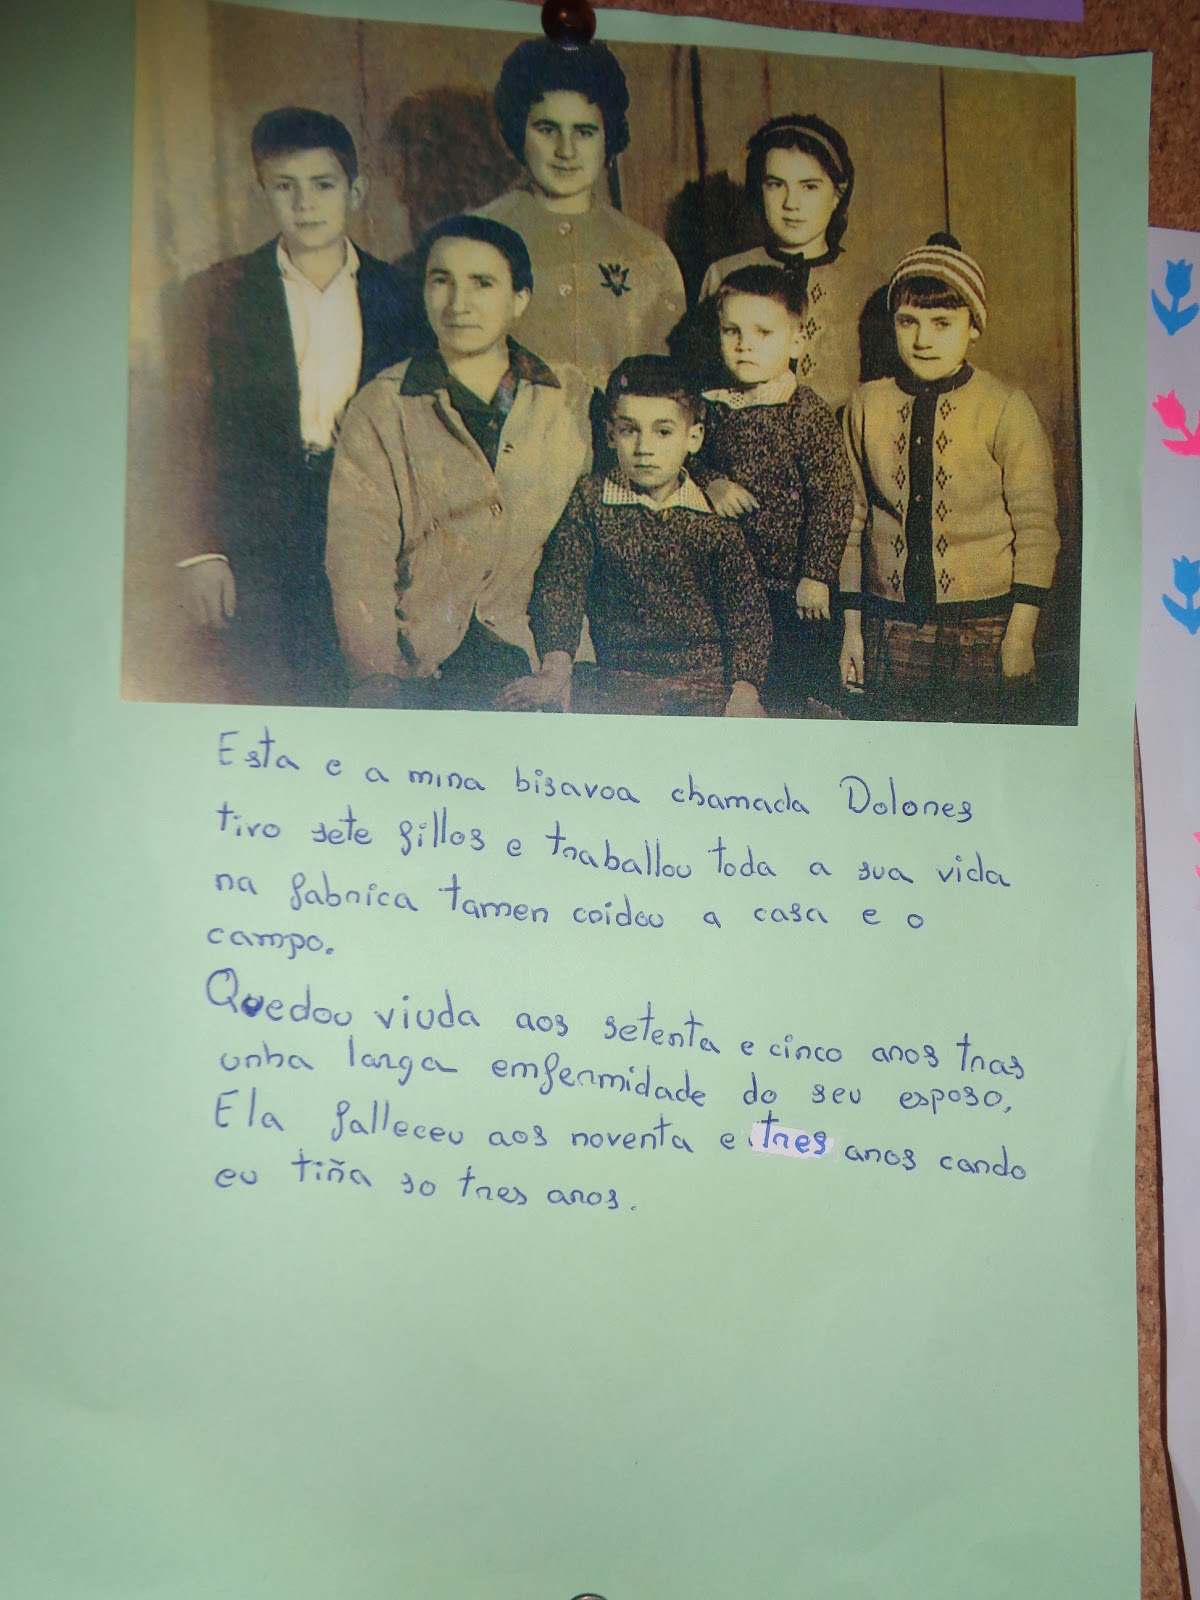 Esta e a mina bisavoa chamada Dolores
tivo sete fillos e traballou toda a sua vida
na fabrica tamen coidou a casa e o
campo.
Quedou viuda aos setenta e cinco anos tras
unha larga enfermidade do seu esposo.
Ela falleceu aos noventa e tres anos cando
eu tiña so tres anos.